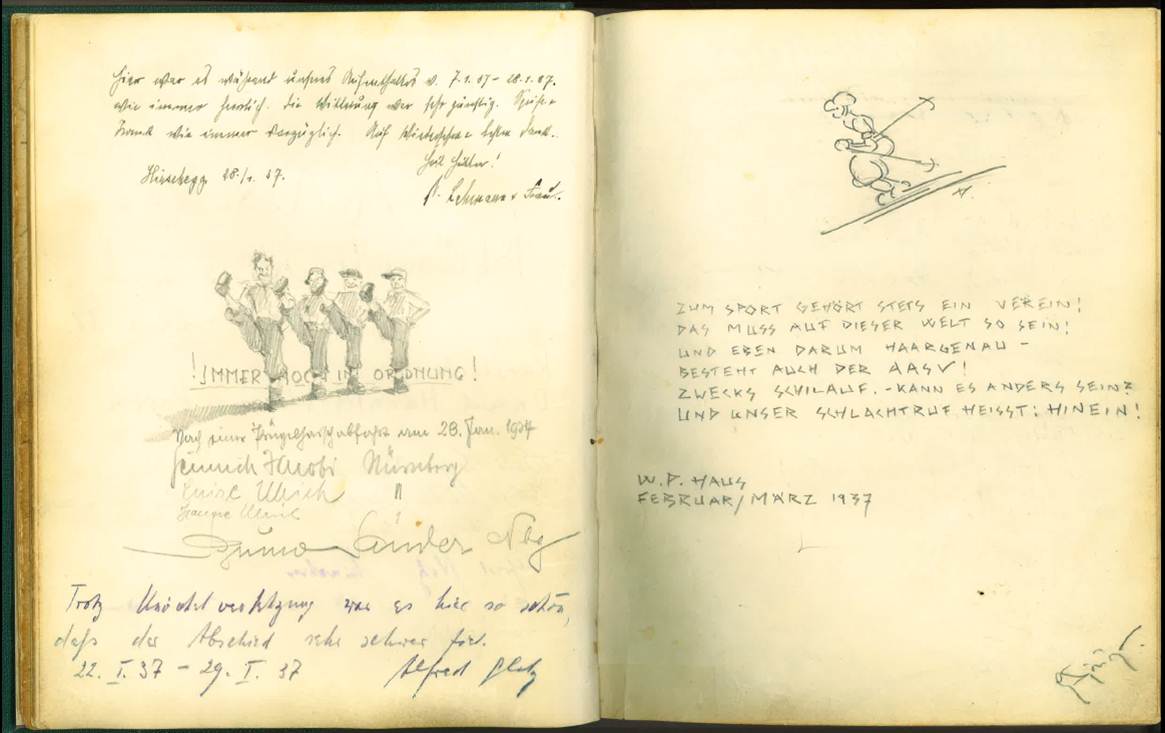 Hier war es während unseres Aufenthaltes v. 7.1.37 - 28.1.37.
wie immer herrlich. Die Witterung war sehr günstig. Speise +
Trank wie immer vorzüglich. Auf Wiedersehen + besten Dank.
Heil Hitler!
Hirschegg, 28./1. 37.
Lehmann + Frau.
! IMMER NOCH IN ORDNUNG !
Nach einer am 28. Jan. 1937
Heinrich Jakobi Nürnberg
Luise Ullrich "
Ullrich
Nbg
Trotz Knöchelverletzung war es hier so schön,
daß der Abschied sehr schwer fiel.
22. I. 37 - 29. I. 37 Alfred
ZUM SPORT GEHÖRT STETS EIN VEREIN!
DAS MUSS AUF DIESER WELT SO SEIN!
UND EBEN DARUM HAARGENAU -
BESTEHT AUCH DER AASV!
ZWECKS SCHILAUF. - KANN ES ANDERS SEIN?
UND UNSER SCHLACHTRUF HEISST: HINEIN!
W.P. HAUS
FEBRUAR/MÄRZ 1937